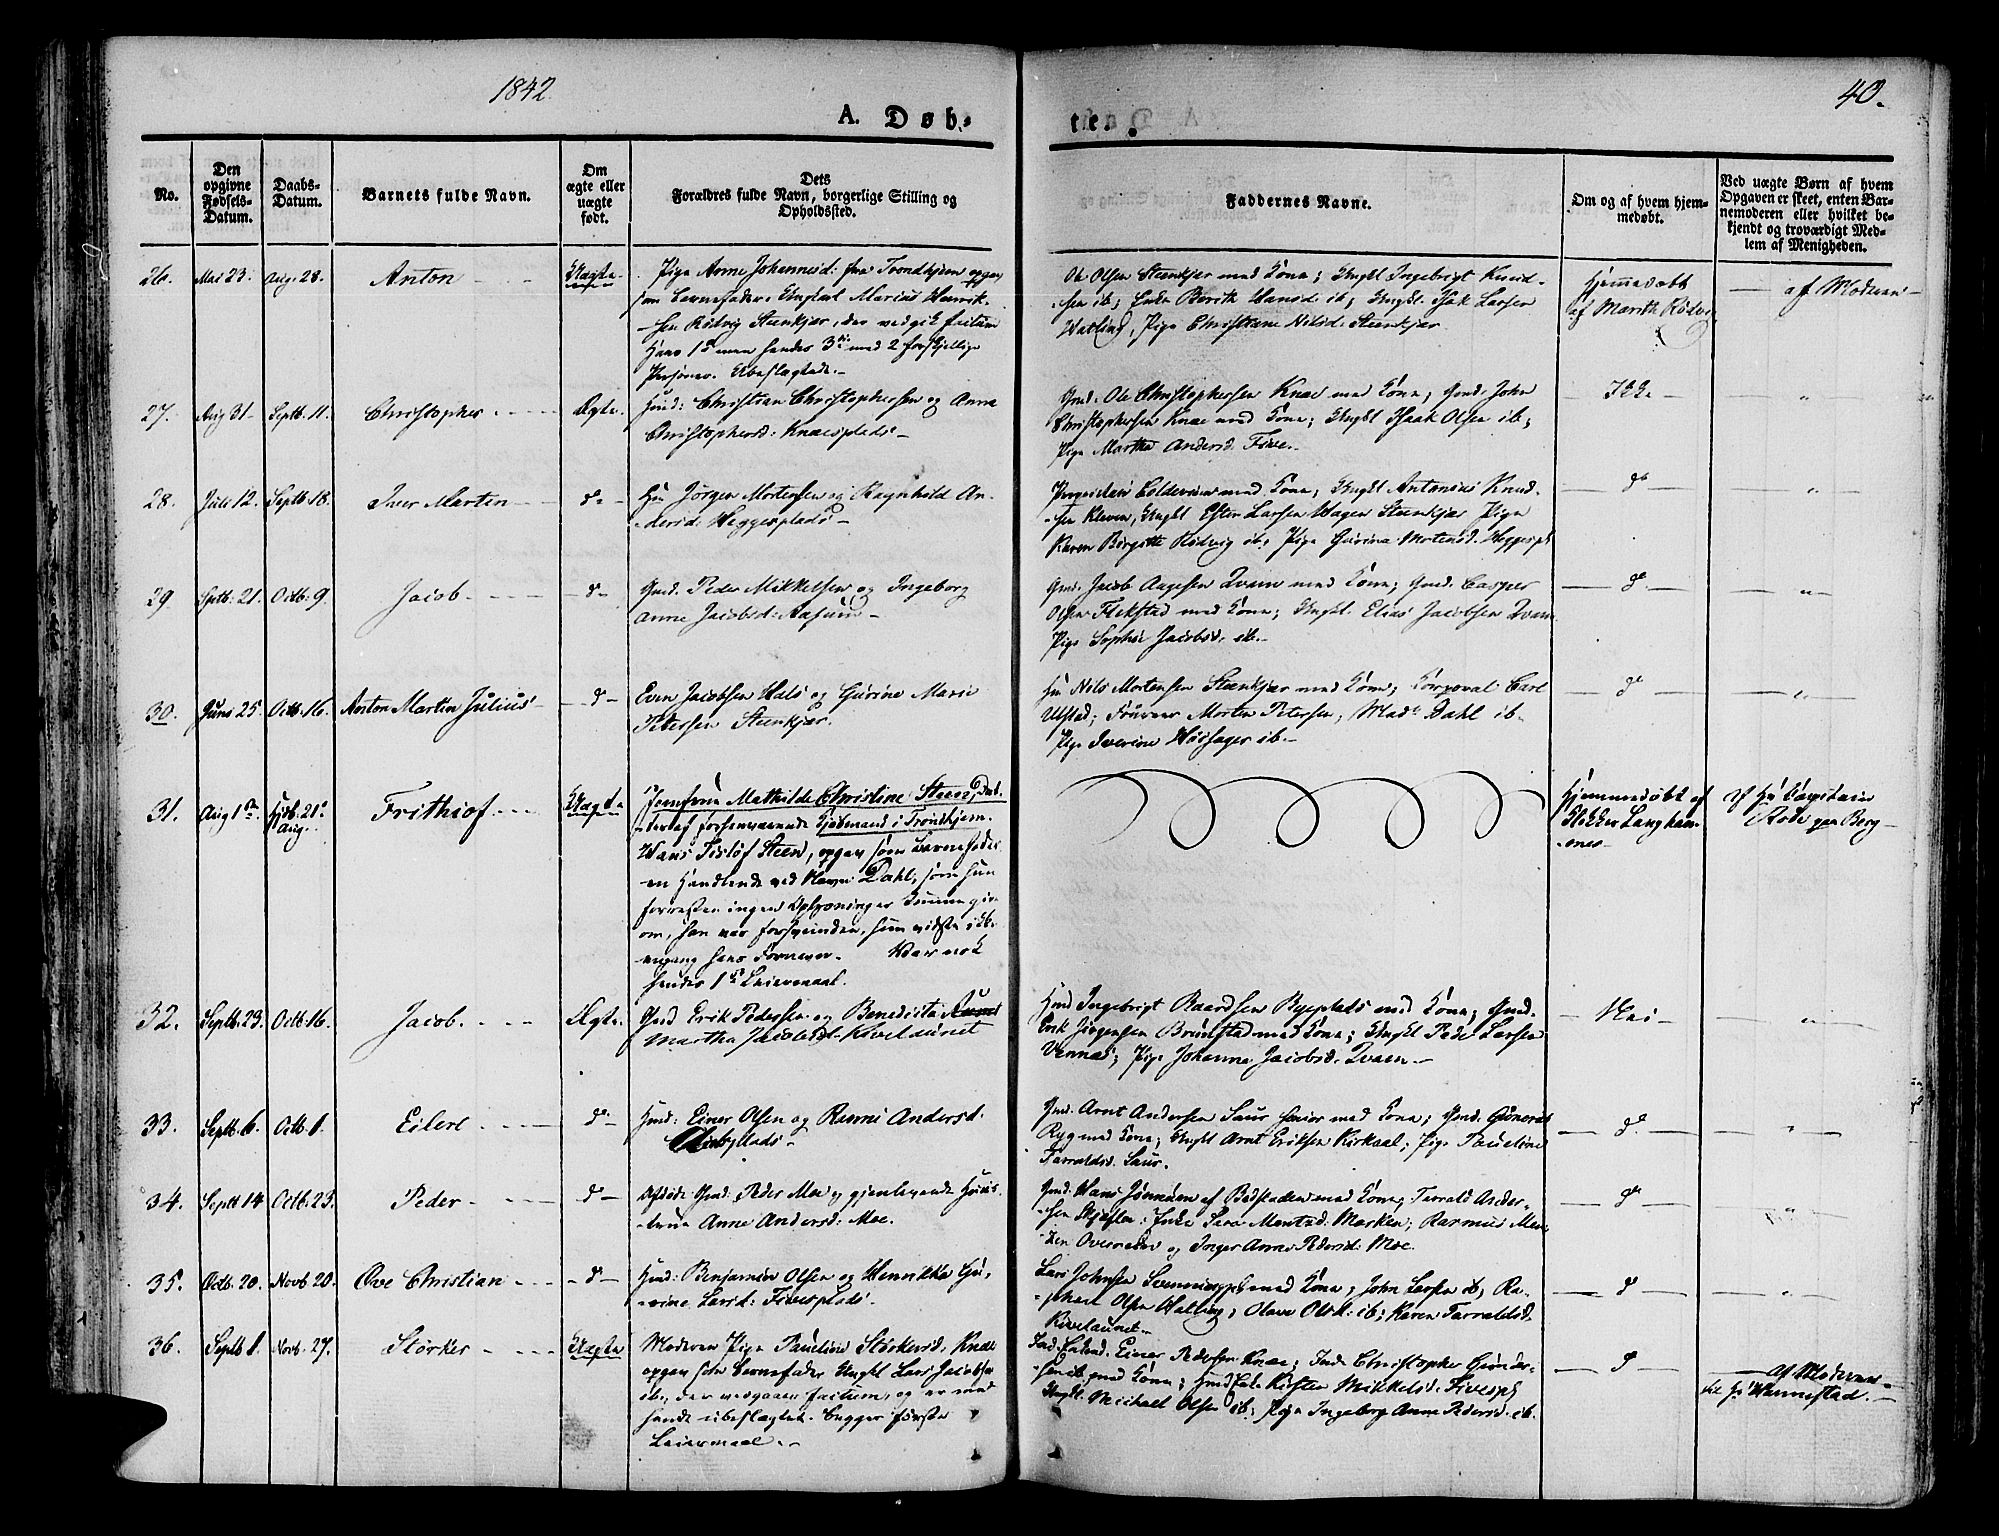 1842
40.
A. Døb-
te.
No.
Den opgivne Fødsels-Datum.
Daabs-Datum.
Barnets fulde Navn.
Om ægte eller uægte født.
Dets Forældres fulde Navn, borgerlige Stilling og Opholdssted.
Faddernes Navne.
Om og af hvem hjem-medøbt.
Ved uægte Børn af hvem Opgaven er skeet, enten Bar-nemoderen eller hvilket be-kjendt og troværdigt Med-lem af Menigheden.
26. Mai 23. Aug. 28. Anton Uægte
Pige Anne Johannesd: fra Trondhjem opgav
som Barnefader Ungkarl Marius Henrik-
sen Rödvig Steenkjær, der vedgik factum
Hans 1ste men hendes 3die med 2 forskjellige
Personer. Ubeslægtede.
Ole Olsen Steenkjær med Kone; Ungkl Ingebrigt Knud-
sen ib; Enke Berith Hansd ib; Ungkl: Isak Larsen
Pige Christiane Nilsd: Steenkjær
Hjemmedøbt
af Marith Rödvig
af Moderen
27. Aug 31 Septb. 11. Christopher Ægte.
Huusm: Christian Christophersen og Anna
Christophersd: Knaesplads
Gmd. Ole Christophersen Knae med Kone; Gmd. John
Christophersen Knae med Kone; Ungkl Isaak Olsen ib;
Pige Martha Andersd. Five.
Ikke
28. Juli 12. Septb 18. Iver Martin do
Hr Jörgen Mortensen og Ragnhild An-
dersd: Heggesplads
med Kone; Ungkl. Antonius Knud-
sen Kleven, Ungkl Ester Larsen Hagen Steenkjær Pige
Karen Birgitte Rödvig ib; Pige Gurina Mortensd. Heggespl
do
29 Septb. 21. Octb. 9. Jacob do
Gmd. Peder Mikkelsen og Ingeborg
Anne Jacobsd: Aasum
Gmd. Jacob Aagesen Qvam med Kone; Gmd. Casper
Olsen Flekstad med Kone; Ungkl. Elias Jacobsen Qvam
Pige Sophie Jacobsd. ib.
do
30. Juni 25. Octb. 16. Anton Martin Julius do
Even Jacobsen Hals og Gurine Marie
Petersen Steenkjær.
Hr Nils Mortensen Steenkjær med Kone; Korporal Carl
Ulstad; Morten Petersen; Mad: Dahl ib.
Pige Iverine ib.
do
31. Aug 1ste Hjdb. 21. Aug. Frithiof Uægte
Jomfrue Mathilde Christine Steen, Dat-
ter af forhenværende Kjøbmand i Trondhjem
Hans Steen, opgav som Barnefader
en Handlende ved Navn Dahl, som hun
forresten ingen Oplysninger kunne give
om, han var forsvunden, hun vidste ikke
engang hans Fornavn. Var nok
hendes 1ste Leiermaal.
Hjemmedøbt af
Klokker Langham-
mer
af Hr Capitain
Rode paa Berg
32. Septb. 23. Octb. 16. Jacob. Ægte.
Gmd Erik Pedersen og Benedicta
Martha Jacobsd. Kvelaunet
Hmd Ingebrigt Baardsen Byeplads med Kone; Gmd.
Erik Jörgensen Brunstad med Kone; Ungkl Peder Larsen
Vennes; Pige Johanna Jacobsd. Qvam
Nei
33. Septb. 6. Octb. Eilert do
Hmd: Einer Olsen og Andersd.
plads
Gmd. Arnt Andersen Saur Senior med Kone; Gmd.
Ryg med Kone; Ungkl Arnt Eriksen Kirkaal; Pige Pauline
Tarraldsd. Saur.
do
34. Septb 14 Octb. 23. Peder do
Afdöde Gmd: Peder Moe og gjenlevende Huus-
true Anne Andersd: Moe.
Gmd. Hans af Bodstaden med Kone; Tarrald Ander-
sen Skjefte; Enke Sara Mentzd: Marken; Rasmus
og Inger Anne Pedersd: Moe.
do
35. Octb. 20. Novb 20. Ove Christian do
Hmd: Benjamin Olsen og Henrikka Gu-
rine Larsd: Fivesplads.
Lars Johnsen med Kone; John Larsen ib; Ra-
Olsen Halling; Olava Olsd: ib; Karen Tarraldsd.
Kvelaunet.
do
36. Septb 1. Novb. 27. Störker Uægte
Moderen Pige Pauline Störkersd. Knae
opgav som Barnefader Ungkl Lars Jacobsen
ib., der vedgaaer factum, og er med
hende ubeslægtet. Begges første
Leiermaal.
Einer Pedersen Knae; Christopher
ib med Kone; Kirsten Mikkelsd. Fivespl
Ungkl. Michael Olsen ib; Pige Ingeborg Anne Pedersd. ib.
do
Af Moderen
til Hr Wannestad.